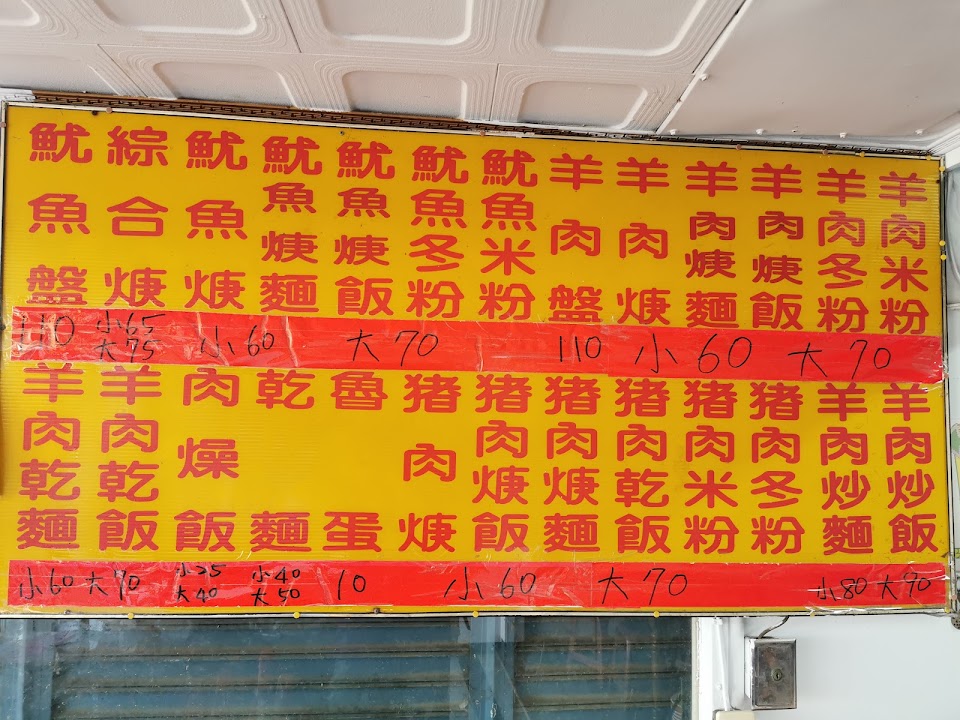 魷魚盤
綜合焿
魷魚焿
魷魚焿麵
魷魚焿飯
魷魚冬粉
魷魚米粉
羊肉盤
羊肉焿
羊肉焿麵
羊肉焿飯
羊肉冬粉
羊肉米粉
110 小65 大75 小60 大70 110 小60 大70
羊肉乾麵
羊肉乾飯
肉燥飯
乾麵
魯蛋
猪肉焿
猪肉焿飯
猪肉焿麵
猪肉乾飯
猪肉米粉
猪肉冬粉
羊肉炒麵
羊肉炒飯
小60 大70 小25 大40 小40 大50 10 小60 大70 小80 大90